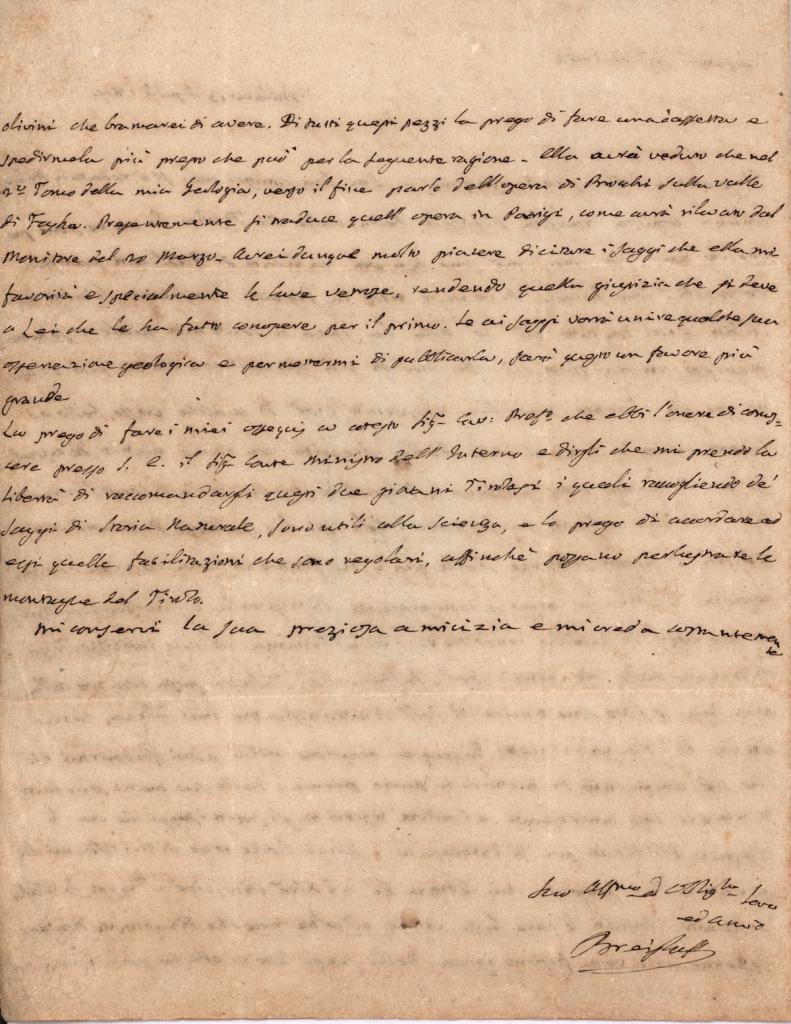 olivini che bramarei di avere. Di tutti questi pezzi la prego di fare una cassetta e
spedirmela più presto che può per la seguente ragione. Ella avrà veduto che nel
2º Tomo della mia Geologia, verso il fine parlo dell'opera di Brocchi sulla valle
di Fassa. Presentemente si traduce quell'opera in Parigi, come avrà rilevato dal
Monitore del 20 Marzo. Avrei dunque molto piacere di citare i saggi che ella mi
favorirà e specialmente le lave vetrose, rendendo quella giustizia che si deve
a Lei che le ha fatto conoscere per il primo. Se ai saggi vorrà unire qualche sua
osservazione geologica e permettermi di pubblicarla, sarà questo un favore più
grande
La prego di fare i miei ossequj a cotesto Sigr. Cav: che ebbi l'onore di conos=
cere presso S. E. il Sigr. Conte Ministro dell'Interno e dirgli che mi prendo la
libertà di raccomandargli questi due giovani Tirolesi i quali raccogliendo de'
saggi di Storia Naturale, sono utili alla scienza, e lo prego di accordare ad
essi quelle facilitazioni che sono regolari, affinchè possano perlustrare le
montagne del Tirolo.
Mi conservi la sua preziosa amicizia e mi creda costantemente
Suo Affmo ed Obbligmo Servo
ed amico
Breislak